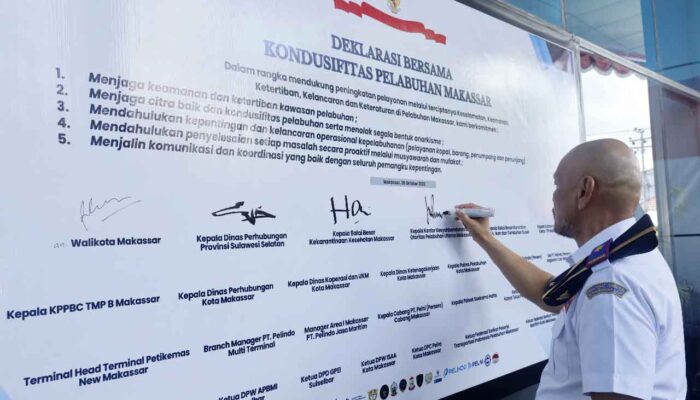 DEKLARASI BERSAMA
KONDUSIFITAS PELABUHAN MAKASSAR
Dalam rangka mendukung peningkatan pelayanan melalui terciptanya Keselamatan, Keamanan,
Ketertiban, Kelancaran dan Keteraturan di Pelabuhan Makassar, kami berkomitmen :
1. Menjaga keamanan dan ketertiban kawasan pelabuhan ;
2. Menjaga citra baik dan kondusifitas pelabuhan serta menolak segala bentuk anarkisme ;
3. Mendahulukan kepentingan dan kelancaran operasional kepelabuhanan (pelayanan kapal, barang, penumpang dan penunjang)
4. Mendahulukan penyelesaian setiap masalah secara proaktif melalui musyawarah dan mufakat ;
5. Menjalin komunikasi dan koordinasi yang baik dengan seluruh pemangku kepentingan.
Makassar, Oktober
an Walikota Makassar
Kepala Dinas Perhubungan
Provinsi Sulawesi Selatan
Kepala Balai Besar
Kekarantinaan Kesehatan Makassar
Kepala Kantor
Otoritas Pelabuhan Utama Makassar
Kepala KPPBC TMP B Makassar
Kepala Dinas Perhubungan
Kota Makassar
Kepala Dinas Koperasi dan UKM
Kota Makassar
Kepala Dinas Ketenagakerjaan
Kota Makassar
Terminal Head Terminal Petikemas
New Makassar
Branch Manager PT. Pelindo
Multi Terminal
Manager Area I Makassar
PT. Pelindo Jasa Maritim
Kepala Cabang PT. Pelni (Persero)
Cabang Makassar
Ketua DPW APBMI
Ketua DPD GPEI
Sulselbar
Ketua DPW ISAA
Kota Makassar
Ketua DPC Pelra
Kota Makassar
PELINDO
PELNI